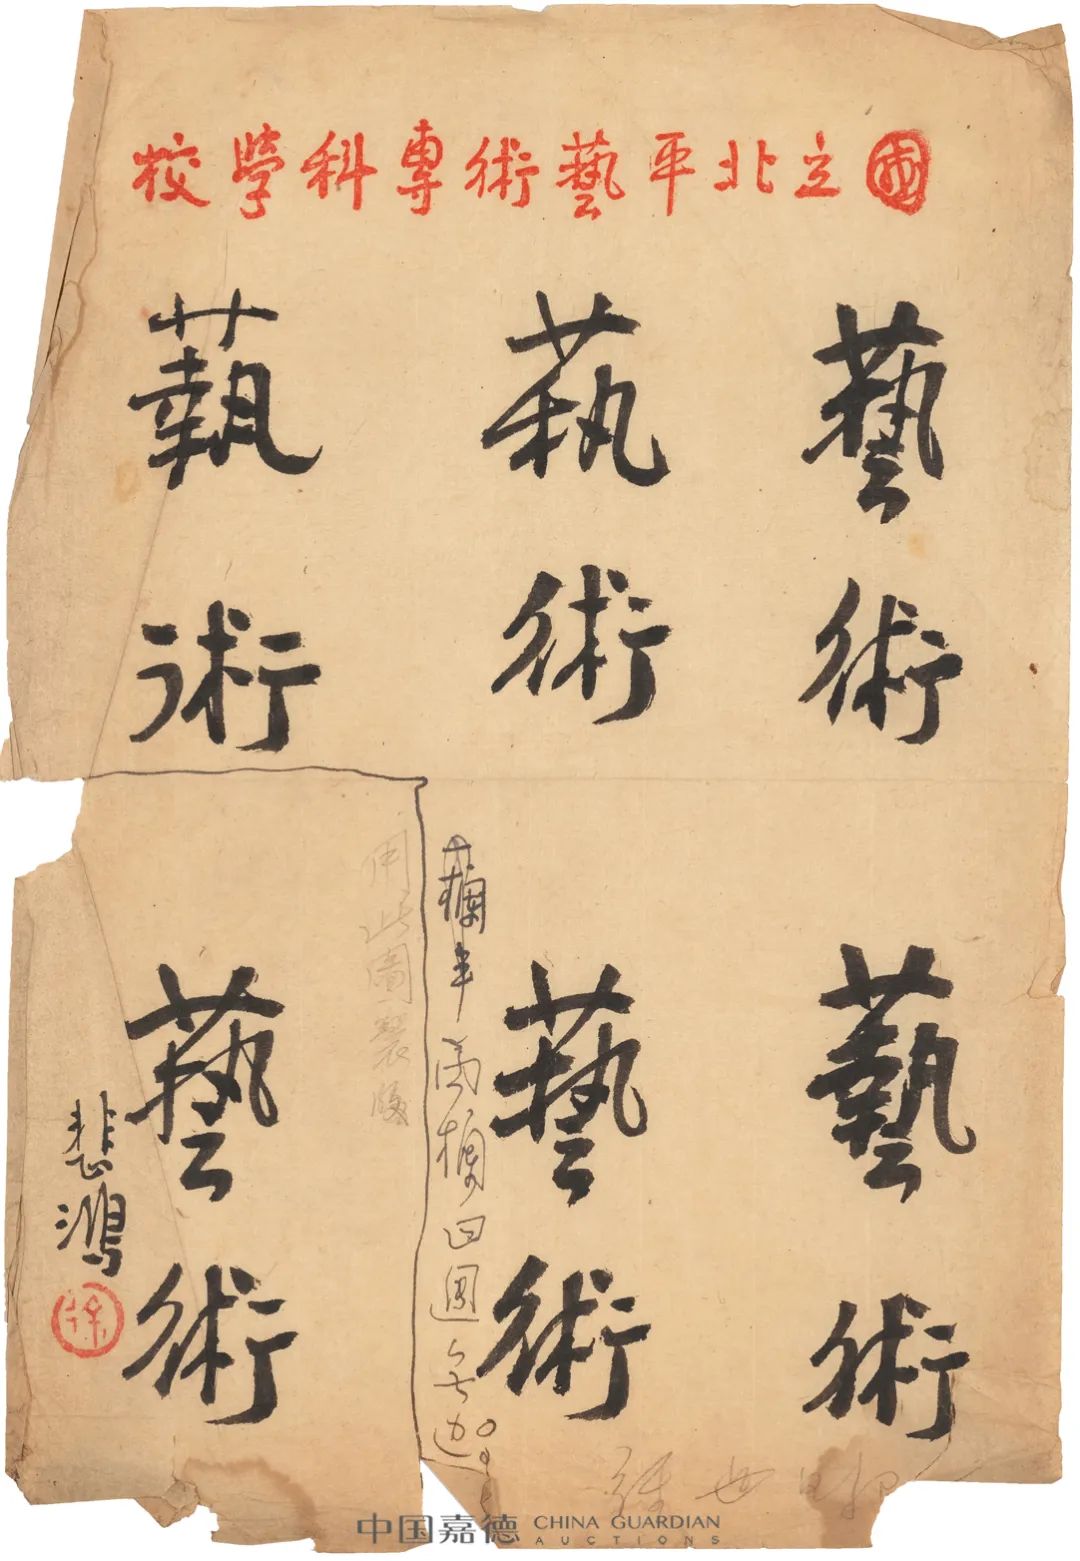 國立北平藝術專科學校
藝術
藝術
藝術
藝術
藝術
藝術
悲鴻
徐
用此圖製版
中国嘉德 CHINA GUARDIAN
AUCTIONS